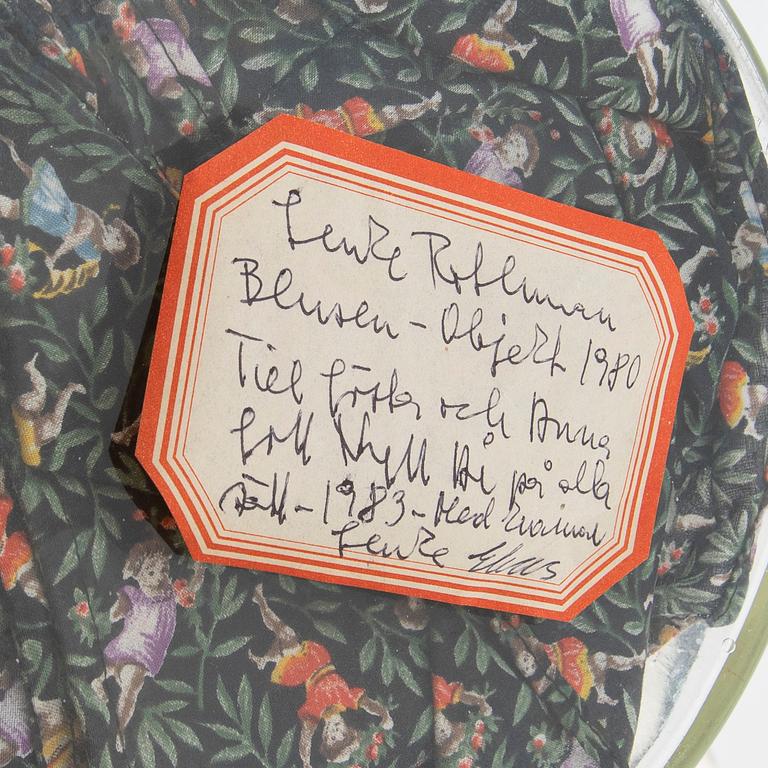 Lenke Rothman
Blusen - Objekt 1980
Till Gösta och Anna
Gott Nytt År på alla
sätt - 1983 - Med
Lenke